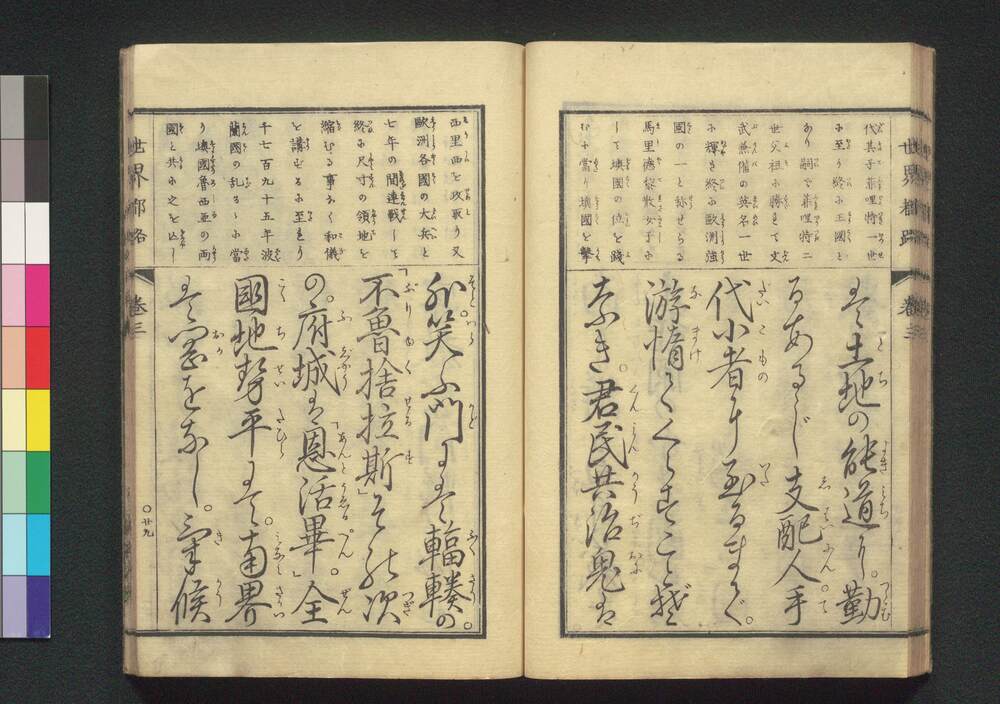 世界都路
巻三
代其子菲哩特一世
に至り終に王國と
あり嗣で菲哩特二
世父祖に勝きて文
武兼備の英名一世
に輝き終に歐洲強
國の一と称せらる
馬里德黎撒女子に
して墺國の位を踐
むに當り墺國を撃
て土地の能道り。勤
るあるじ支配人。手
代小者に至るまで。
游惰てくらすこと
なき。君民共治鬼は
西里西を攻取り又
歐洲各國の大兵と
七年の間連戦して
終に尺寸の領地を
縮むる事なく和儀
を講ずるに至まり
千七百九十五年波
蘭國の乱るゝに當
り墺國魯西亜の両
國と共に之を
外。笑ふ門には輻輳の。
「不魯捨拉斯」その次
の。府城は「恩活畢」。全
國地勢平にて。南界
は。をなし。氣候
世界都路
巻三
○廿九